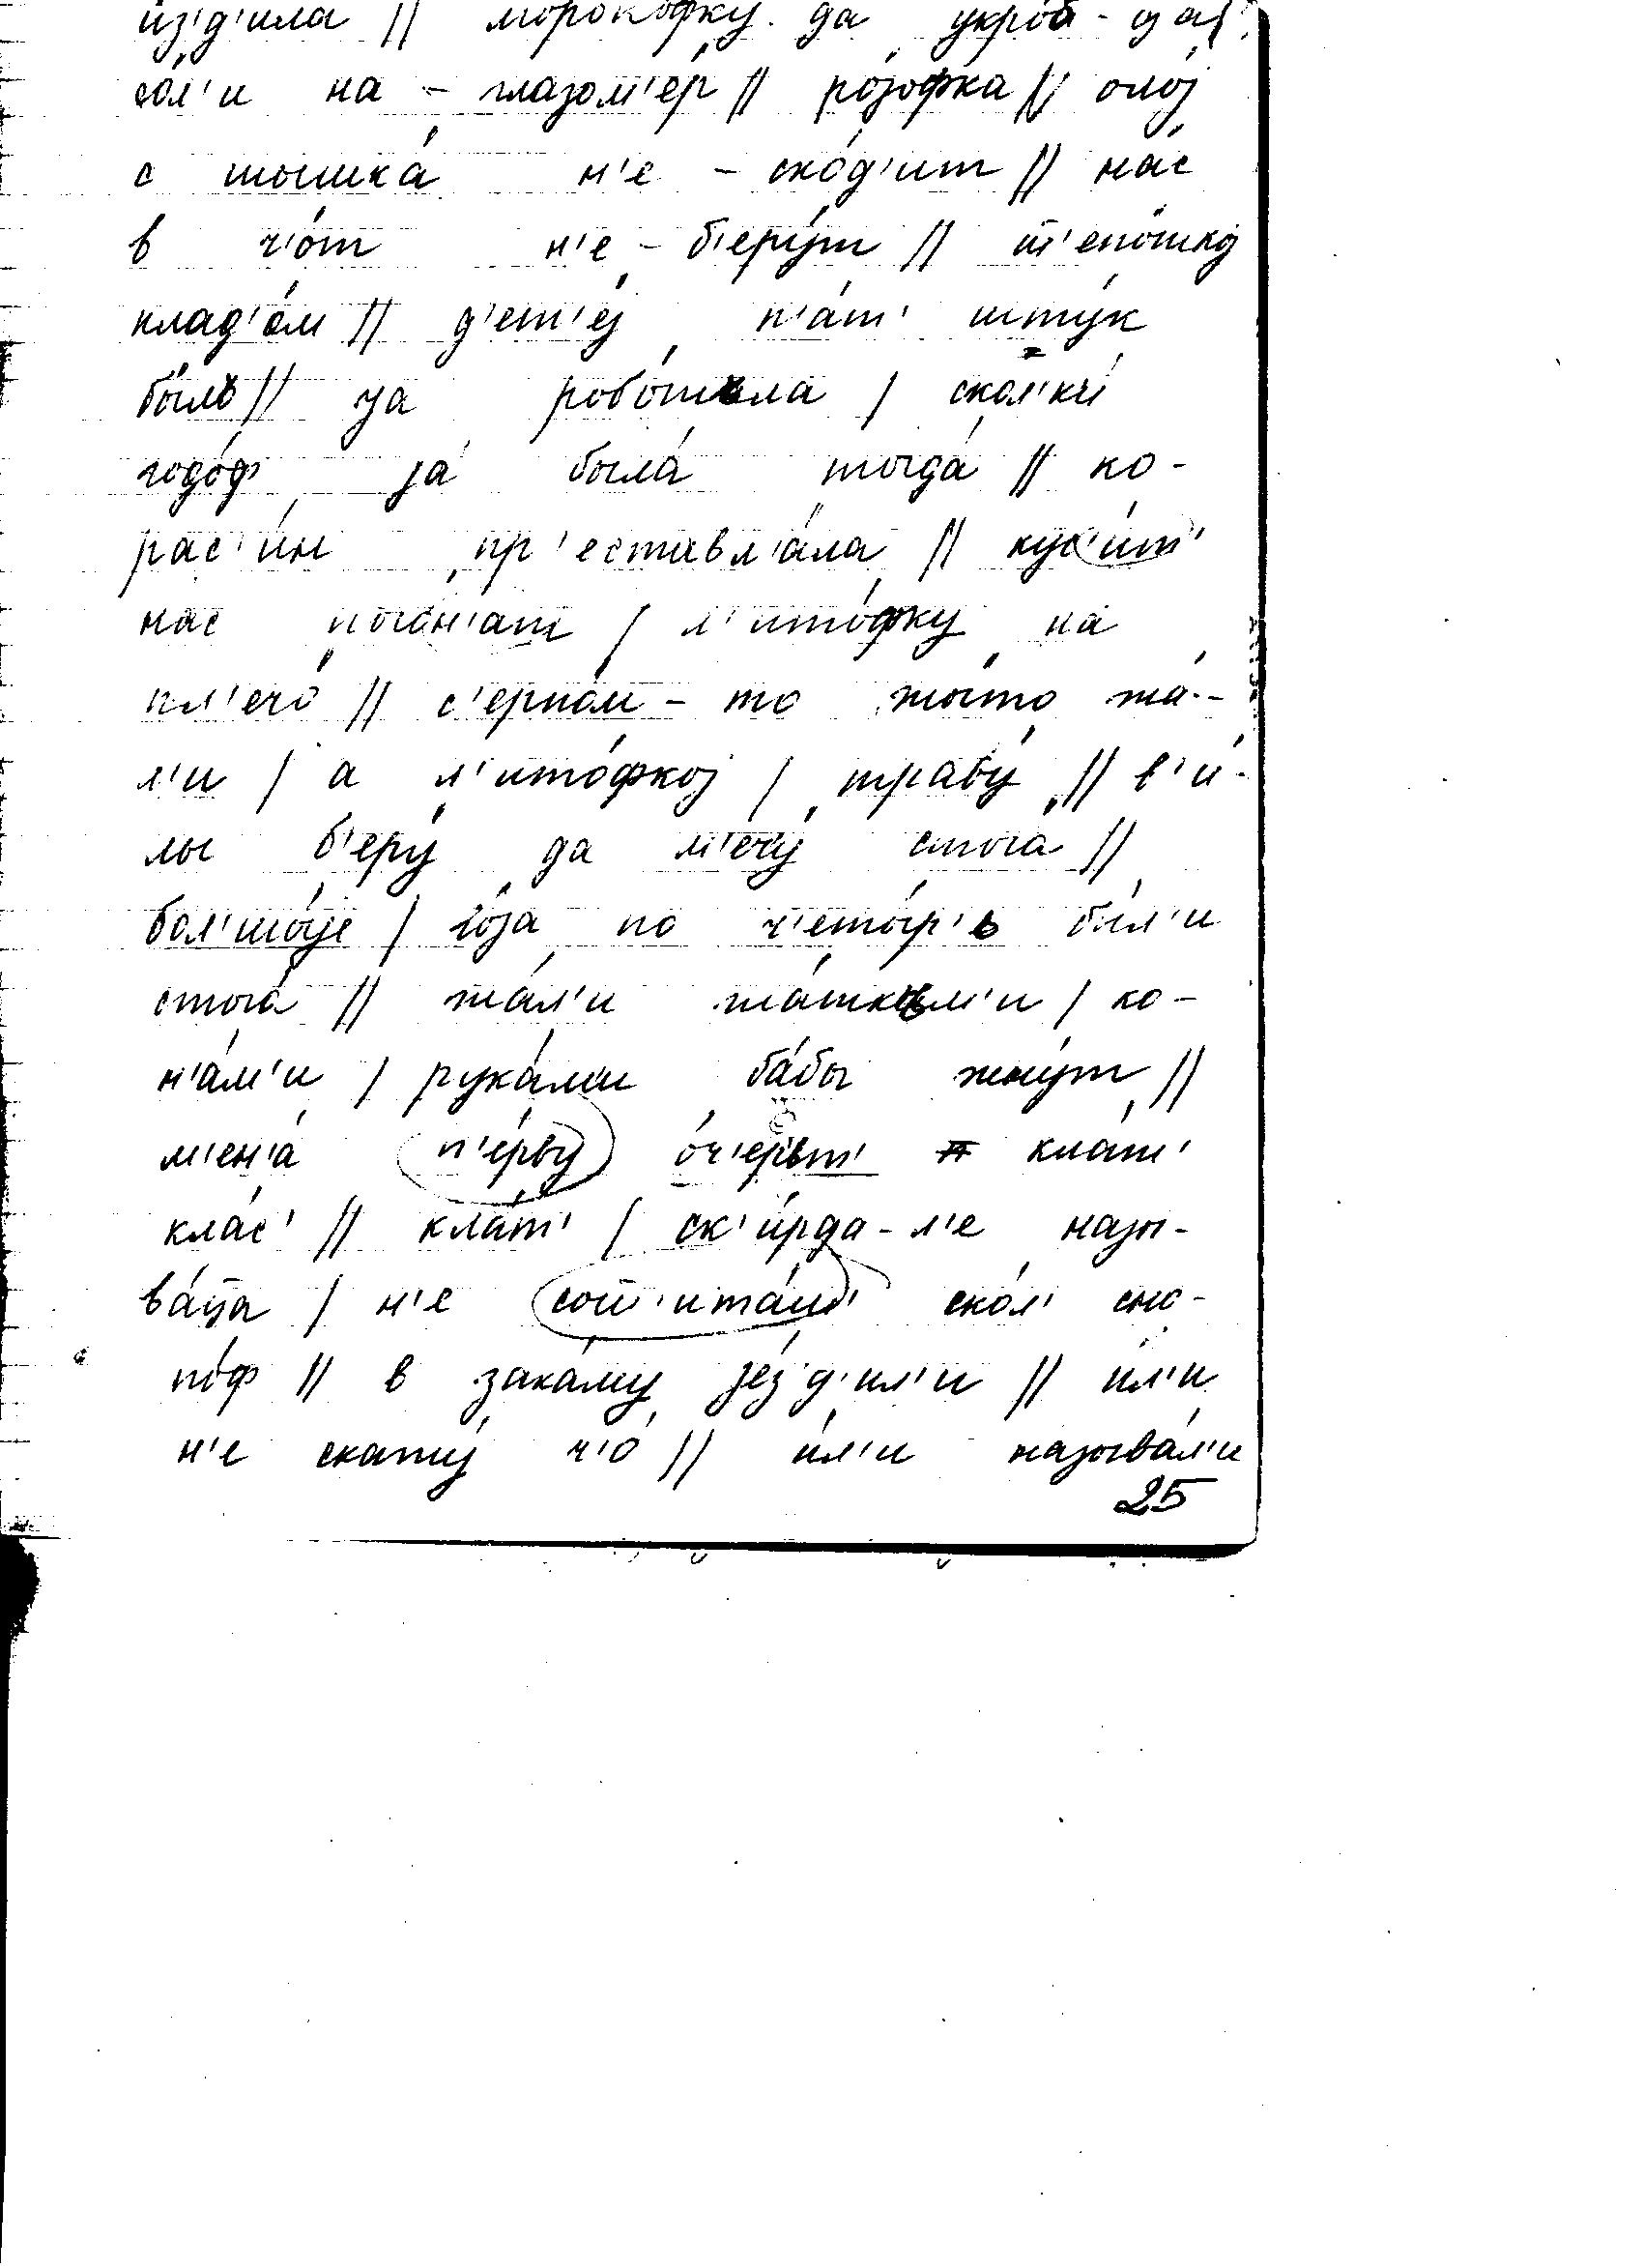 из'д'ила // морокофку да укроп - да
сол'и на - глазом'е́р // ро́зофка // оло́ј
с тышка́ н'е - ско́д'ит // на́с
в ч'о́т н'е - б'еру́т //
клад'о́м // д'ет'е́ј п'а́т' шту́к
бы́лъ // ја робо́тъла / скол'ки́
годо́ф ја́ была́ тыгда́ // ко-
рас'и́н пр'еставл'а́ла //
нас пого́н'ат / л'ито́фку на
пл'ечо́ // с'ерпо́м - то жы́то жа́-
л'и / а л'ито́фкој / траву́ // в'и́-
лы б'еру́ да м'ечу́ стога́ //
бол'шо́јe / го́ја по ч'еты́р'ь бы́л'и
стога́ // жа́л'и жа́ткъм'и / ко-
н'а́м'и / рука́ми ба́бы жну́т //
м'ен'а́ п'е́рву о́ч'ер'ьт' кла́т'
кла́с' // кла́т' / ск'и́рда - л'е назы-
ва́ца / н'е скол' сно-
по́ф // в закаму је́з'д'ил'и // ил'и
н'е скажу́ ч'о́ // и́л'и называ́л'и
25